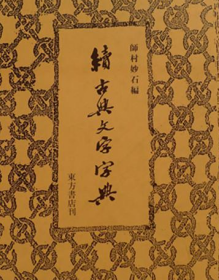 師村妙石編
續古典文字字典
東方書店刊